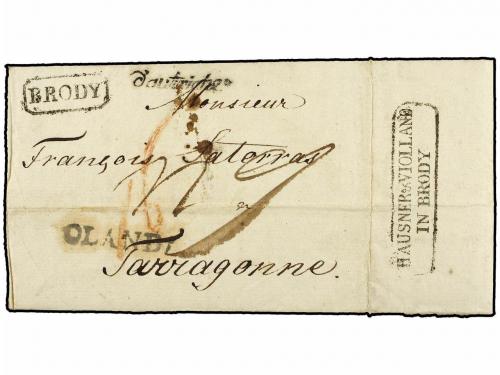 BRODY
d'autriche
Monsieur
François Satorras
a
OLANDA
Tarragonne.
HAUSNER & VIOLLAND
IN BRODY